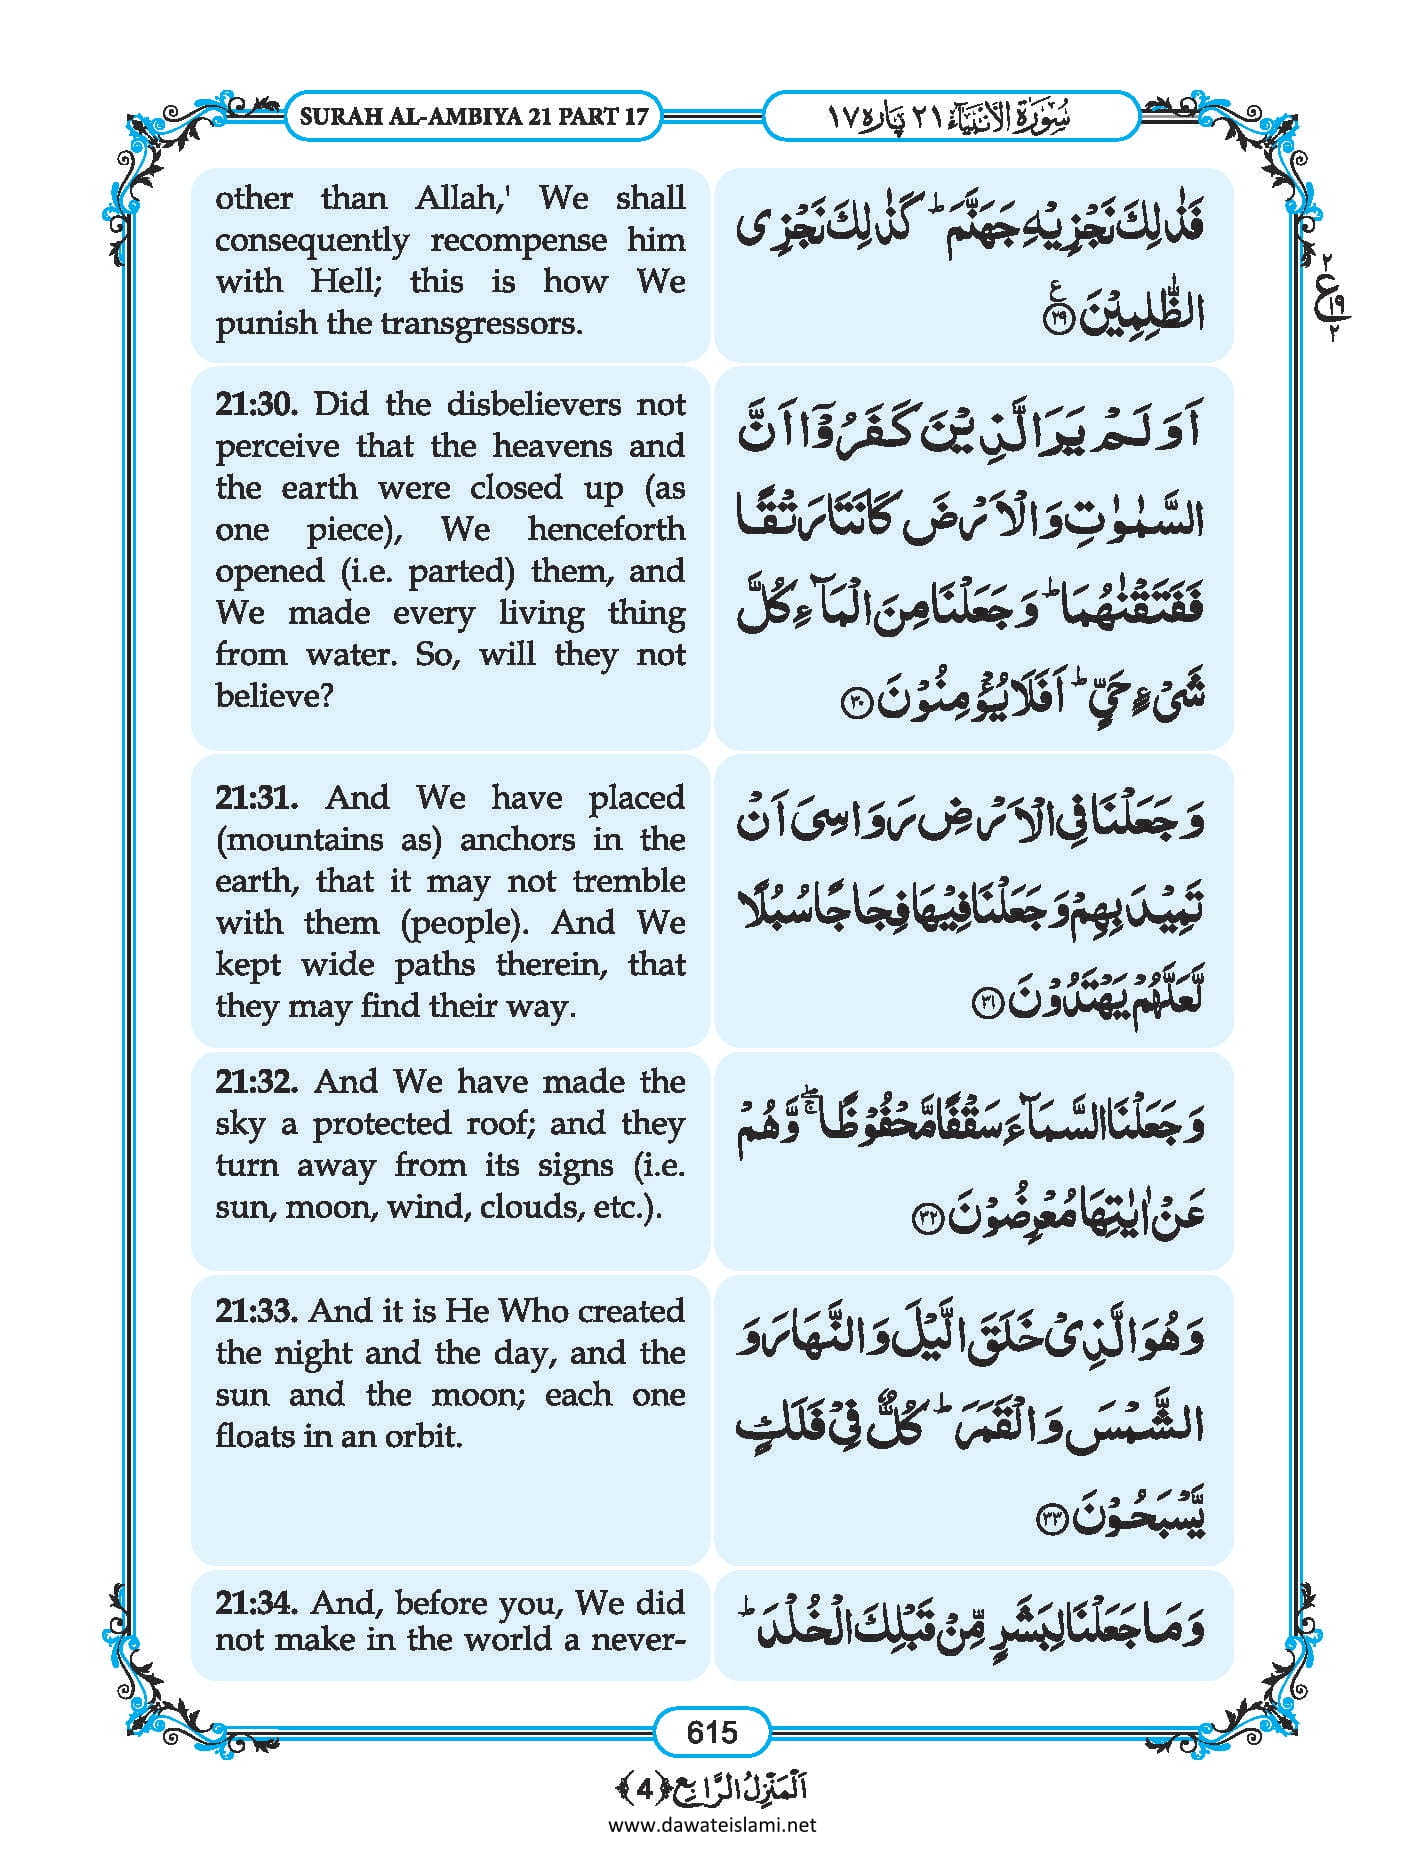 SURAH AL-AMBIYA 21 PART 17
سُوْرَۃُ الْاَنْبِیَآء ۲۱ پارہ ۱۷
other than Allah,' We shall
consequently recompense him
with Hell; this is how We
punish the transgressors.
فَذٰلِکَ نَجْزِیْہِ جَہَنَّمَ ؕ کَذٰلِکَ نَجْزِی
الظّٰلِمِیْنَ ﴿٪۲۹﴾
ع
۲
۱۹
۲
21:30. Did the disbelievers not
perceive that the heavens and
the earth were closed up (as
one piece), We henceforth
opened (i.e. parted) them, and
We made every living thing
from water. So, will they not
believe?
اَوَ لَمْ یَرَ الَّذِیْنَ کَفَرُوْۤا اَنَّ
السَّمٰوٰتِ وَ الْاَرْضَ کَانَتَا رَتْقًا
فَفَتَقْنٰہُمَا ؕ وَ جَعَلْنَا مِنَ الْمَآءِ کُلَّ
شَیْءٍ حَیٍّ ؕ اَفَلَا یُؤْمِنُوْنَ ﴿۳۰﴾
21:31. And We have placed
(mountains as) anchors in the
earth, that it may not tremble
with them (people). And We
kept wide paths therein, that
they may find their way.
وَ جَعَلْنَا فِی الْاَرْضِ رَوَاسِیَ اَنْ
تَمِیْدَ بِہِمْ وَ جَعَلْنَا فِیْہَا فِجَاجًا سُبُلًا
لَّعَلَّہُمْ یَہْتَدُوْنَ ﴿۳۱﴾
21:32. And We have made the
sky a protected roof; and they
turn away from its signs (i.e.
sun, moon, wind, clouds, etc.).
وَ جَعَلْنَا السَّمَآءَ سَقْفًا مَّحْفُوْظًا ۚۖ وَّ ہُمْ
عَنْ اٰیٰتِہَا مُعْرِضُوْنَ ﴿۳۲﴾
21:33. And it is He Who created
the night and the day, and the
sun and the moon; each one
floats in an orbit.
وَ ہُوَ الَّذِیْ خَلَقَ الَّیْلَ وَ النَّہَارَ وَ
الشَّمْسَ وَ الْقَمَرَ ؕ کُلٌّ فِیْ فَلَکٍ
یَّسْبَحُوْنَ ﴿۳۳﴾
21:34. And, before you, We did
not make in the world a never-
وَ مَا جَعَلْنَا لِبَشَرٍ مِّنْ قَبْلِکَ الْخُلْدَ ؕ
615
اَلْمَنْزِلُ الرَّابِع ﴿4﴾
www.dawateislami.net